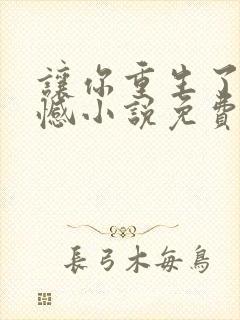 讓你重生了
憾小說免費
長弓木每鳥